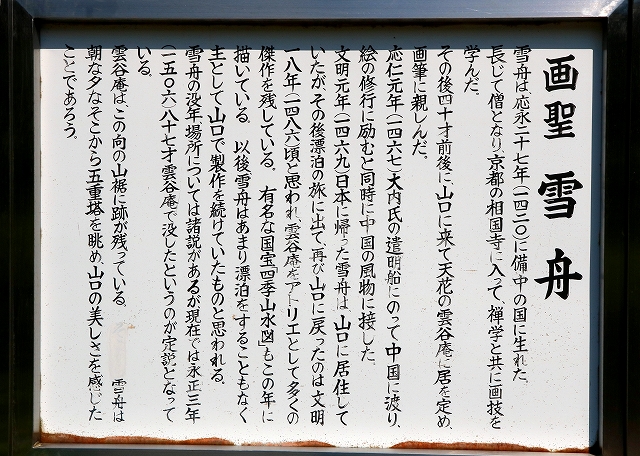 画聖 雪舟
雪舟は、応永二十七年(一四二〇)に備中の国に生れた。
長じて僧となり、京都の相国寺に入って、禅学と共に画技を
学んだ。
その後四十才前後に山口に来て天花の雲谷庵に居を定め、
画筆に親しんだ。
応仁元年(一四六七)大内氏の遣明船にのって中国に渡り、
絵の修行に励むと同時に中国の風物に接した。
文明元年(一四六九)日本に帰った雪舟は、山口に居住して
いたが、その後漂泊の旅に出て、再び山口に戻ったのは、文明
一八年(一四八六)頃と思われ、雲谷庵をアトリエとして多くの
傑作を残している。 有名な国宝「四季山水図」もこの年に
描いている。 以後雪舟はあまり漂泊をすることもなく
主として山口で製作を続けていたものと思われる。
雪舟の没年、場所については諸説があるが現在では永正三年
(一五〇六)八十七才雲谷庵で没したというのが定説となって
いる。
雲谷庵は、この向の山裾に跡が残っている。 雪舟は
朝な夕なそこから五重塔を眺め、山口の美しさを感じた
ことであろう。